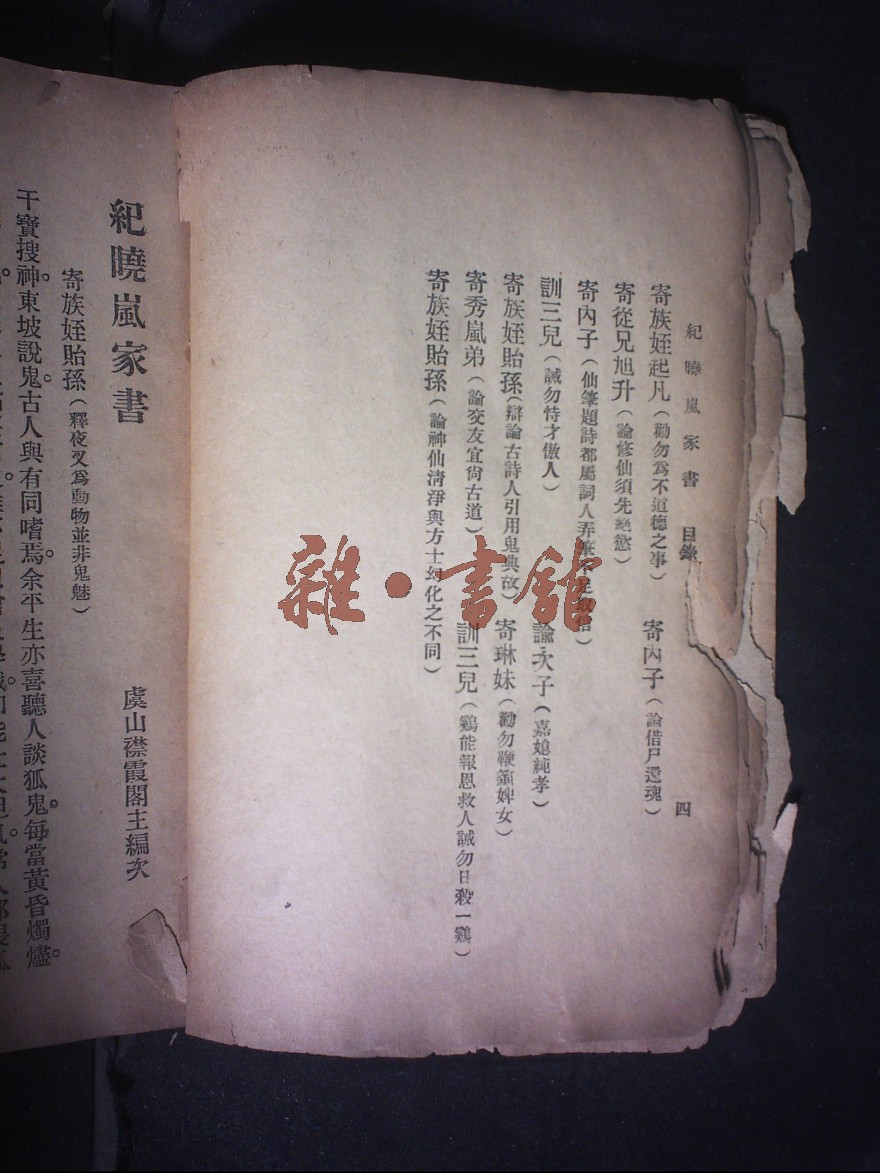 紀曉嵐家書 目錄 四
寄族姪起凡（勸勿為不道德之事） 寄內子（論借尸還魂）
寄從兄旭升（論修仙須先絕慾）
寄內子（仙筆題詩都屬詞人弄筆不足取信）
訓三兒（誡勿恃才傲人） 諭次子（嘉媳純孝）
寄族姪貽孫（辯論古詩人引用鬼典故） 寄琳妹（勸勿鞭箠婢女）
寄秀嵐弟（論交友宜尙古道） 訓三兒（鷄能報恩救人誡勿日殺一鷄）
寄族姪貽孫（論神仙清淨與方士幻化之不同）
雜·書館
紀曉嵐家書
虞山襟霞閣主編次
寄族姪貽孫（釋夜叉為動物並非鬼魅）
干寶搜神。東坡說鬼。古人與有同嗜焉。余平生亦喜聽人談狐鬼。每當黃昏燭燼。